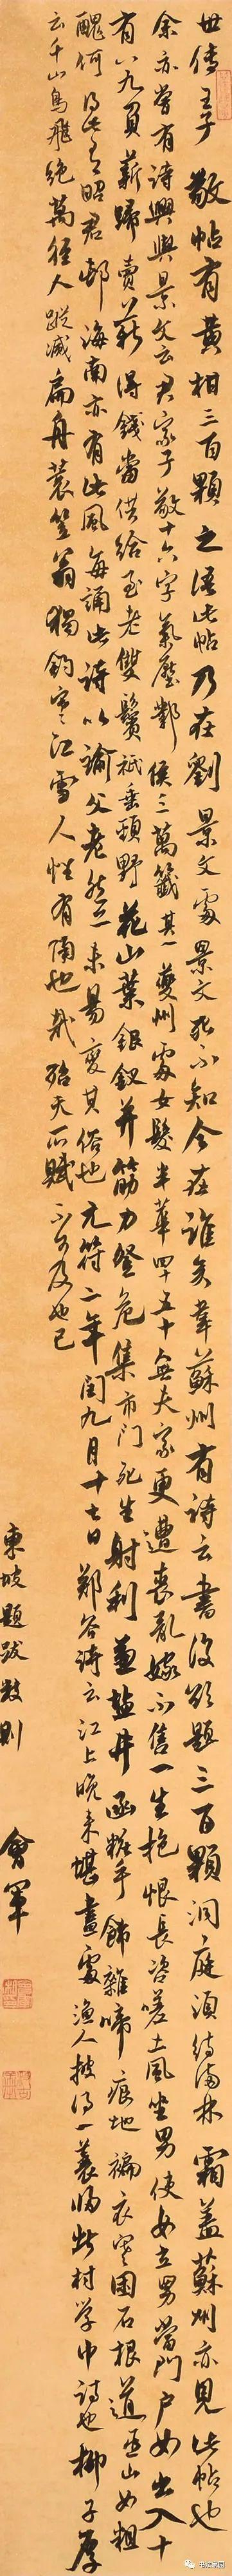 世傳王子敬帖有黄柑三百顆之語此帖乃在劉景文處景文死不知今在誰矣韋蘇州有詩云書後欲題三百顆洞庭須待滿林霜蓋蘇州亦見此帖也
余亦嘗有詩興與景文云君家子敬十六字氣壓鄴侯三萬籤其一夔州處女髮半華四十五十無夫家更遭喪亂嫁不售一生抱恨長咨嗟土風坐男使女立男當門户女出入十
有八九負薪歸賣薪得錢當供給至老雙鬟祇垂頸野花山葉銀釵并筋力登危集市門死生射利兼鹽井面粧手飾雜啼痕地褊衣寒困石根道巫山女粗
醜何得此有昭君邨海南亦有此風每誦此詩以諭父老然亦未易變其俗也元符二年閏九月十七日鄭谷詩云江上晚来堪畫處漁人披得一蓑歸此村学中詩也柳子厚
云千山鳥飛絶萬徑人蹤滅扁舟蓑笠翁獨釣寒江雪人性有隔也哉殆天所賦不可及也已
東坡題跋數則
會軍